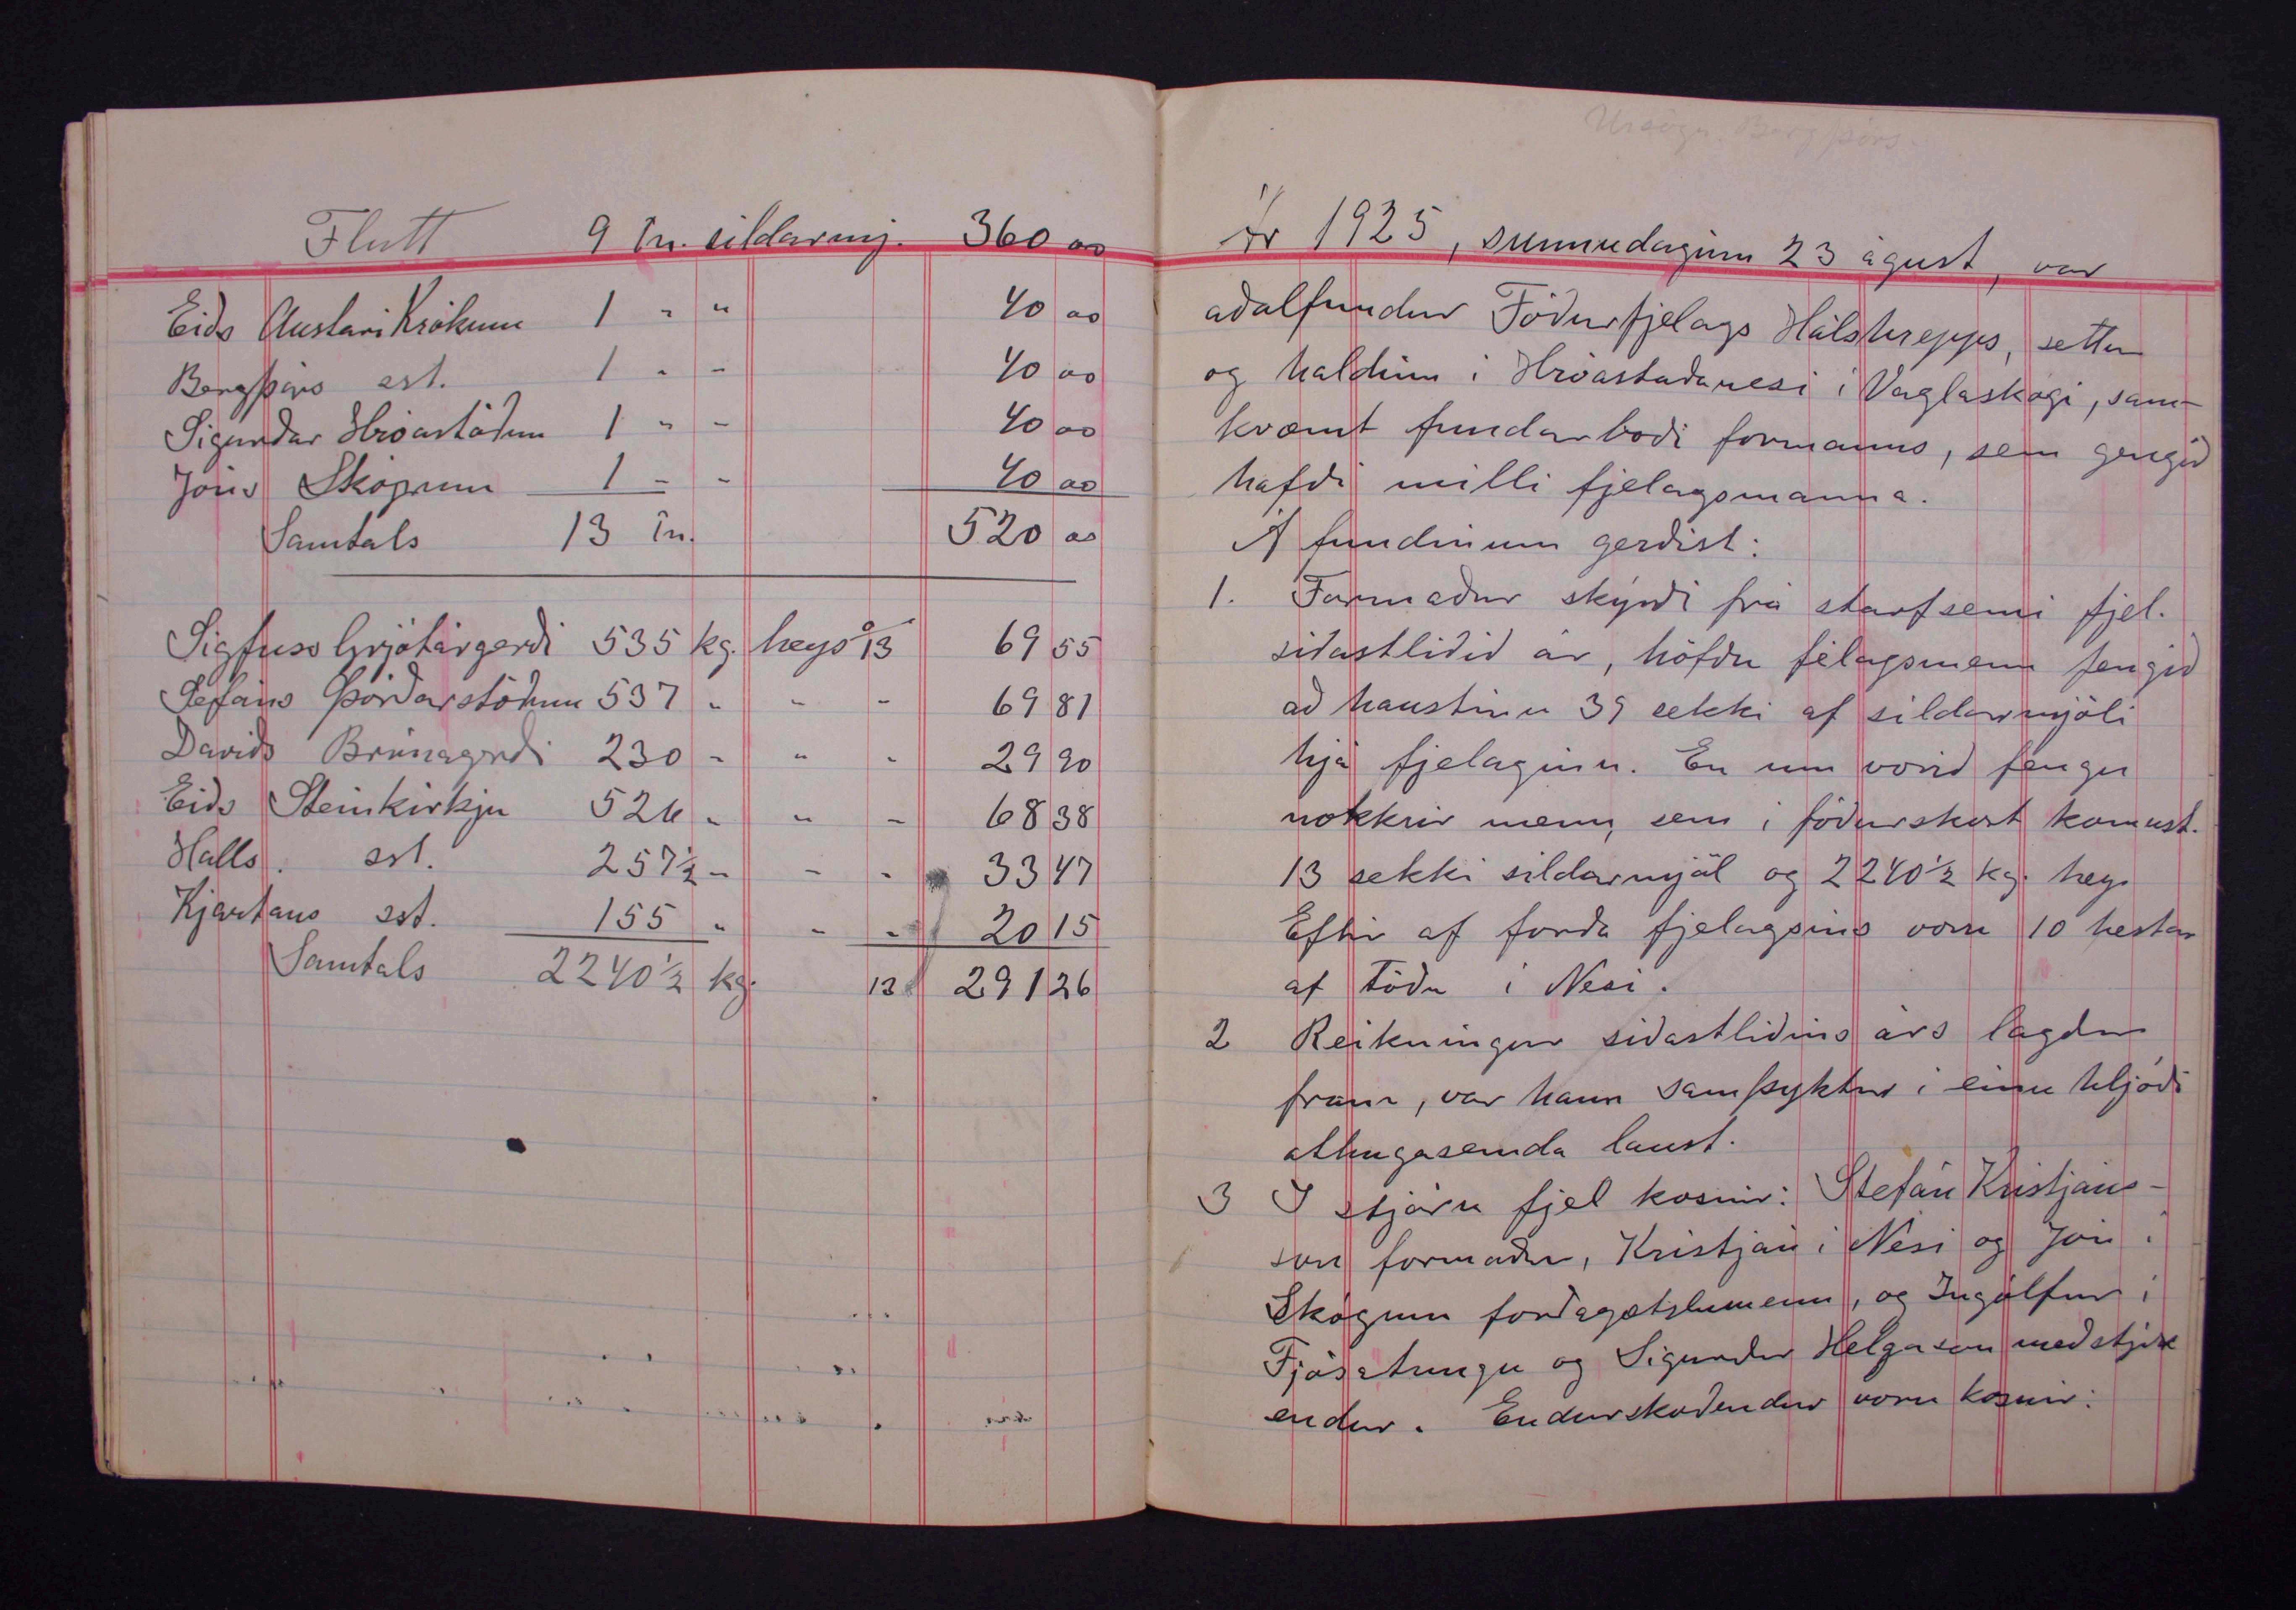 Flutt 9 tn. síldarmj. 360 00
Eiðs Austari Krókum 1 " " 40 00
Bergþórs sst. 1 " - 40 00
Sigurðar Hróastöðum 1 " - 40 00
Jóns Skógum 1 - - 40 00
Samtals 13 tn. 520 00
Sigfúsar Grjótárgerði 535 kg. heys 0/13 69 55
Stefáns Þórðarstöðum 537 " - - 69 81
Davíðs Brúnagerði 230 - " - 29 90
Eiðs Steinkirkju 526 " " - 68 38
Halls sst. 257½ - - - 33 47
Kjartans sst. 155 " - - 20 15
Samtals 2240½ kg. 13 291 26
Úrsögn Bergþórs.
Ár 1925, sunnudaginn 23 ágúst, var
aðalfundur Fóðurfjelags Hálshrepps, settur
og haldinn í Hróastaðanesi í Vaglaskógi, sam-
kvæmt fundarboði formanns, sem gengið
hafði milli fjelagsmanna.
Á fundinum gerðist:
1. Formaður skýrði frá starfsemi fjel.
síðastliðið ár, höfðu félagsmenn fengið
að haustinu 39 sekki af síldarmjöli
hjá fjelaginu. En um vorið fengu
nokkrir menn, sem í fóðurskort komust.
13 sekki síldarmjöl og 2240½ kg. heys
Eftir af forða fjelagsins voru 10 hestar
af töðu í Nesi.
2 Reikningur síðastliðins árs lagður
fram, var hann samþyktur í einu hljóði
athugasemda laust.
3 Í stjórn fjel kosnir: Stefán Kristjáns-
son formaður, Kristján í Nesi og Jón í
Skógum forðagætslumenn, og Ingólfur í
Fjósatungu og Sigurður Helgason meðstjórn
endur. Endurskoðendur voru kosnir: